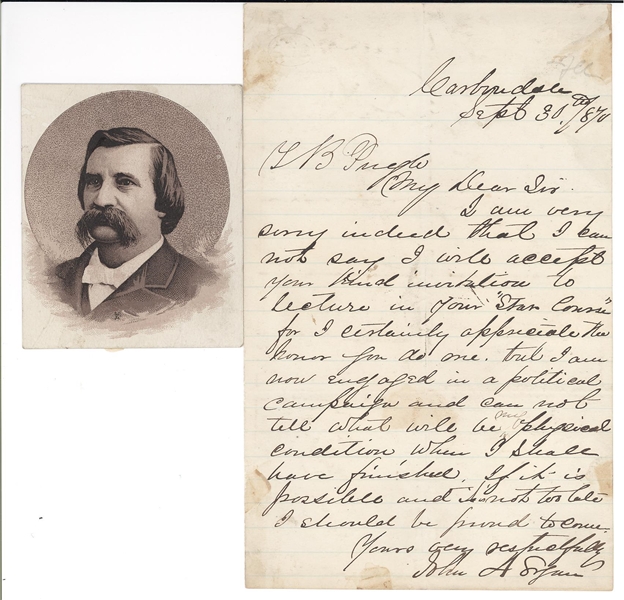 Carbondale
Sept 30th 1870
T B Pugh
My Dear Sir.
I am very
sorry indeed that I can
not say I will accept
your kind invitation to
lecture in your "Star Course"
for I certainly appreciate the
honor you do me. but I am
now engaged in a political
campaign and can not
tell what will be my physical
condition when I shall
have finished. If it is
possible and is not too late
I should be proud to come.
Yours very respectfully
John A Logan